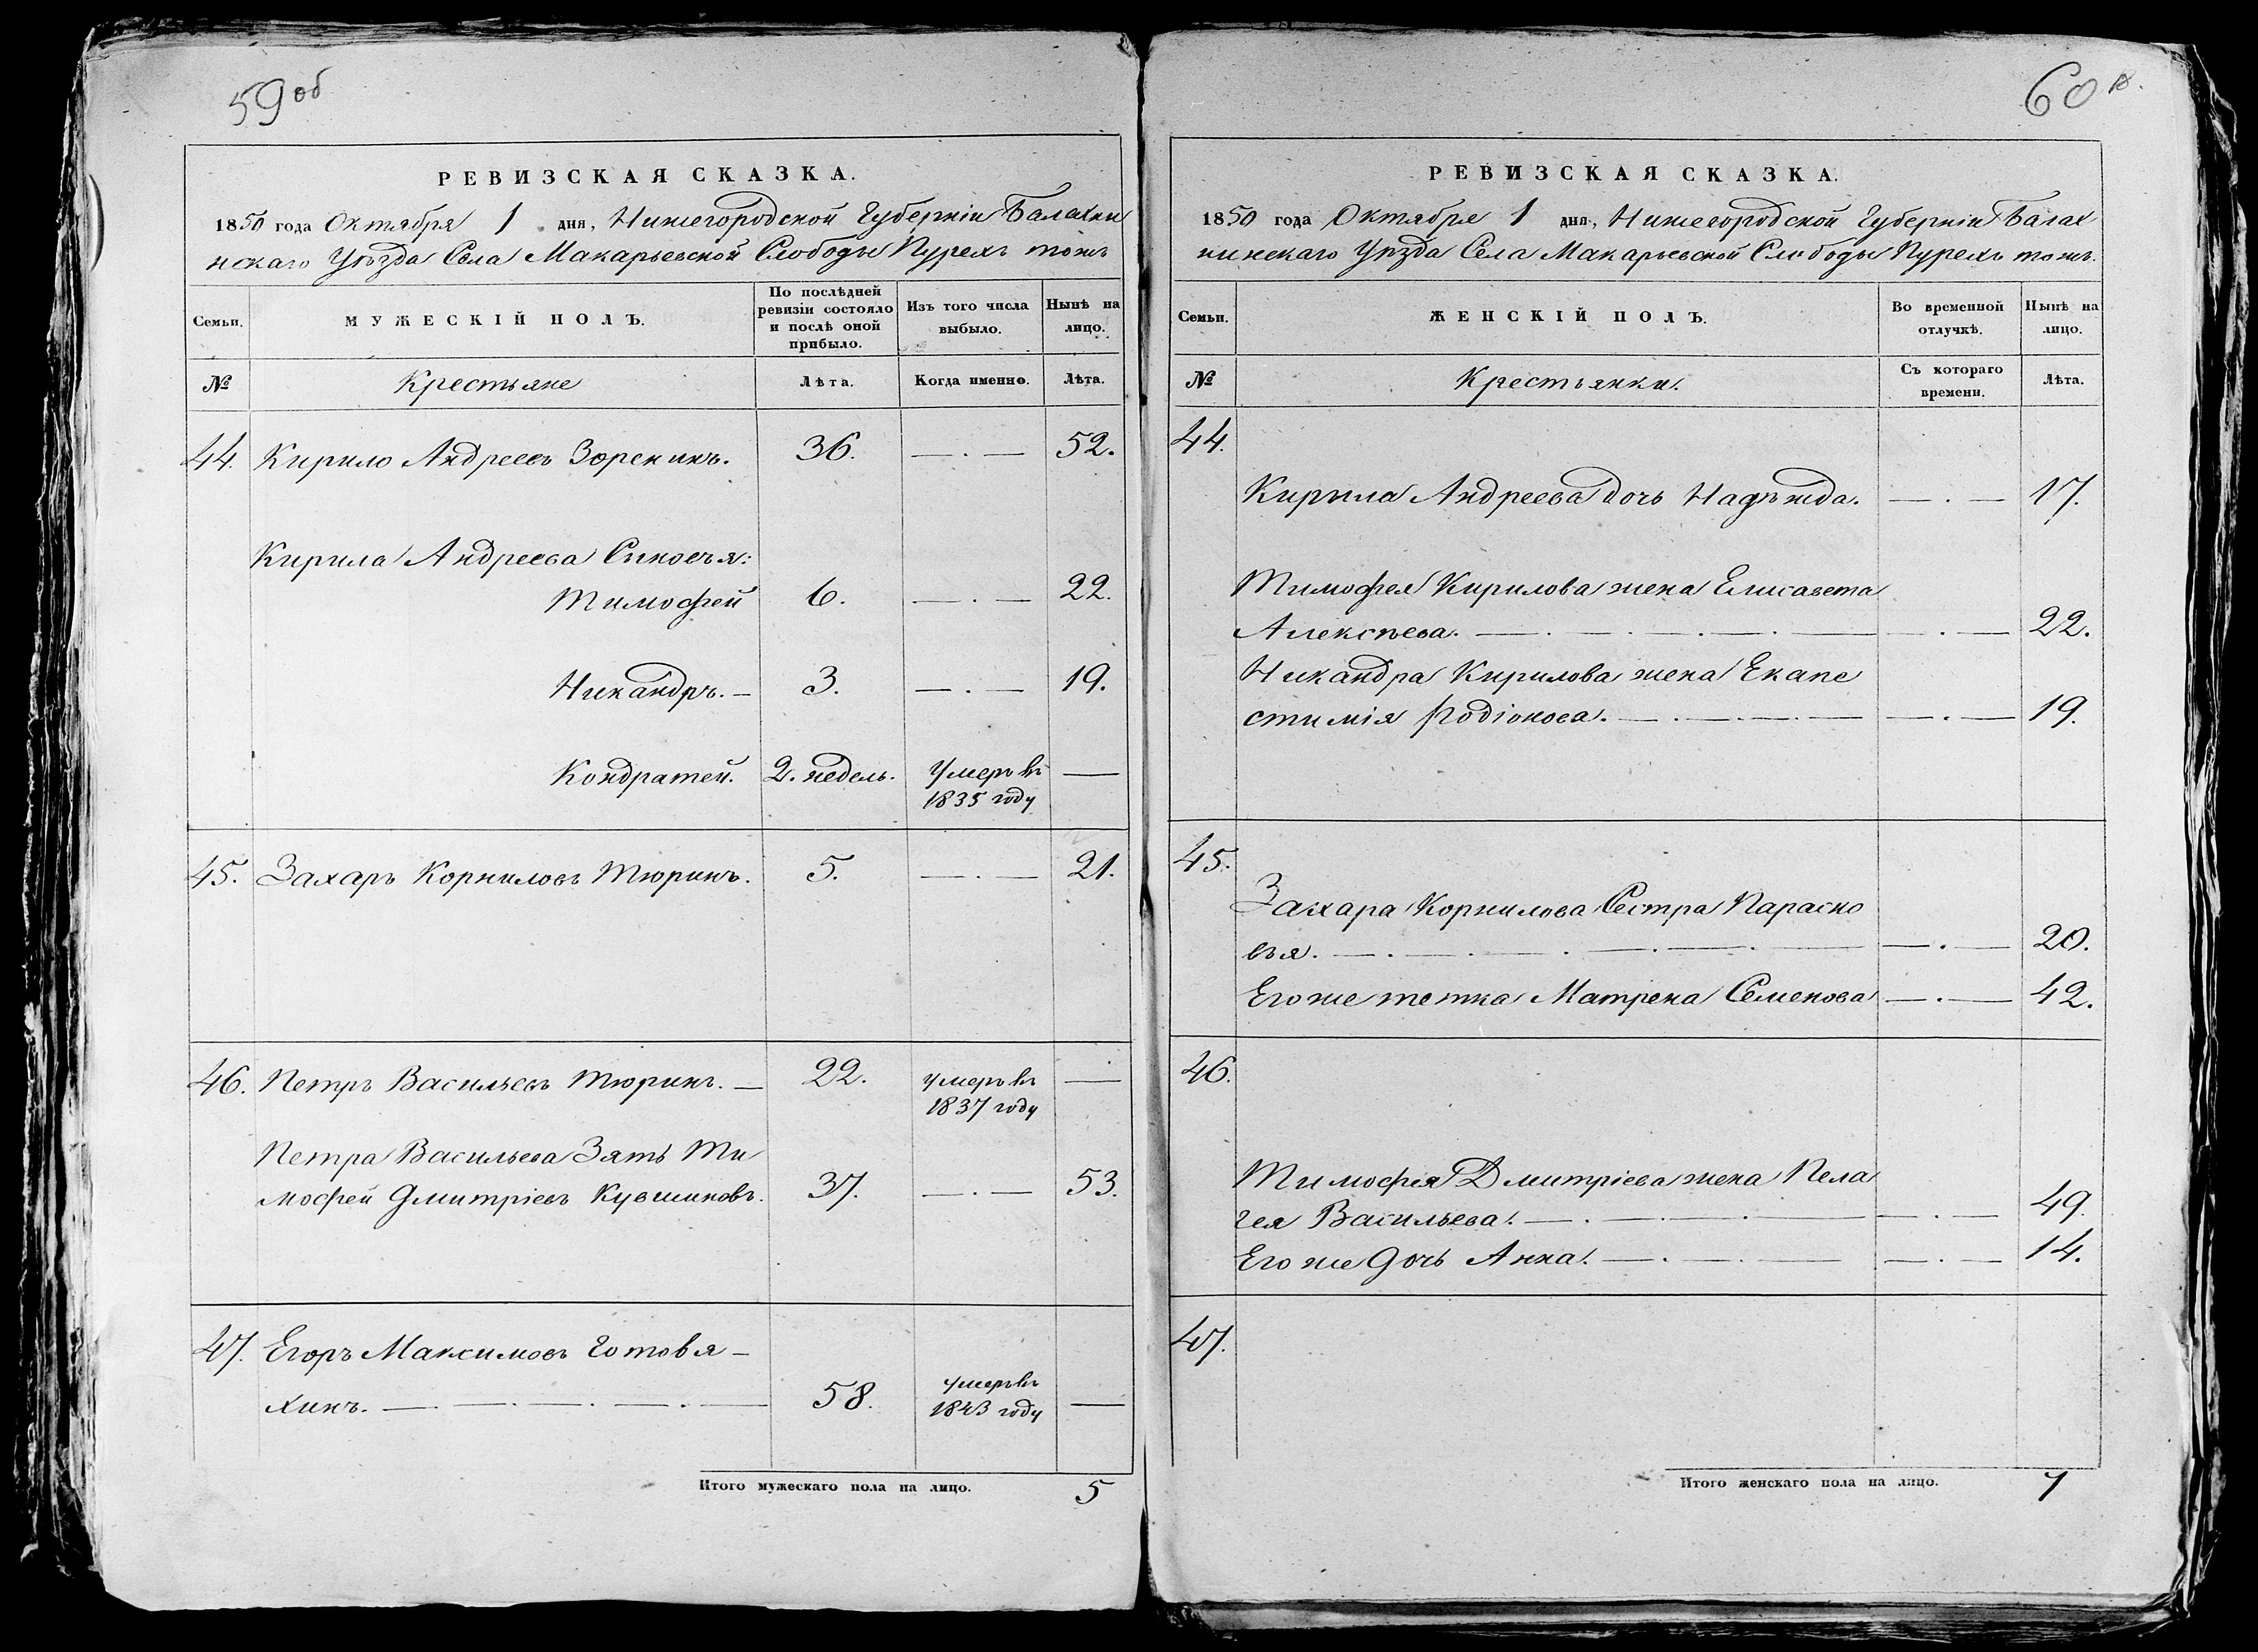 59об
РЕВИЗСКАЯ СКАЗКА.
1850 года Октября 1 дня, Нижегородской Губерніи Балахни
нскаго Уѣзда Села Макарьевской Слободы Пурехъ тожъ
Семьи.
МУЖЕСКІЙ ПОЛЪ.
По послѣдней
ревизіи состояло
и послѣ оной
прибыло.
Изъ того числа
выбыло.
Нынѣ на
лицо.
№
Крестьяне
Лѣта.
Когда именно.
Лѣта.
44. Кирило Андреевъ Зоренинъ. 36. 52.
Кирила Андреева Сыновья:
Тимофей 6. 22.
Никандръ. 3. 19.
Кондратей. 2. недель. Умеръ въ
1835 году
45. Захаръ Корниловъ Тюринъ. 5. 21.
46. Петръ Васильевъ Тюринъ. 22. умеръ въ
1837 году
Петра Васильева Зять Ти
мофей Дмитріевъ Кувшиновъ. 37. 53.
47. Егоръ Максимовъ Готовя-
хинъ. 58. умеръ въ
1843 году
Итого мужескаго пола на лицо. 5
60
РЕВИЗСКАЯ СКАЗКА.
1850 года Октября 1 дня, Нижегородской Губерніи Балах
нинскаго Уѣзда Села Макарьевской Слободы Пурехъ тожъ.
Семьи.
ЖЕНСКІЙ ПОЛЪ.
Во временной
отлучкѣ.
Нынѣ на
лицо.
№
Крестьянки.
Съ котораго
времени.
Лѣта.
44.
Кирила Андреева дочь Надѣжда. 17.
Тимофея Кирилова жена Елисавета
Алексѣева. 22.
Никандра Кирилова жена Екапе
стимія Родіонова. 19.
45.
Захара Корнилова Сестра Параско
вья. 20.
Его же тетка Матрена Семенова 42.
46.
Тимофея Дмитріева жена Пела
гея Васильева. 49.
Его же дочь Анна. 14.
47.
Итого женскаго пола на лицо. 7